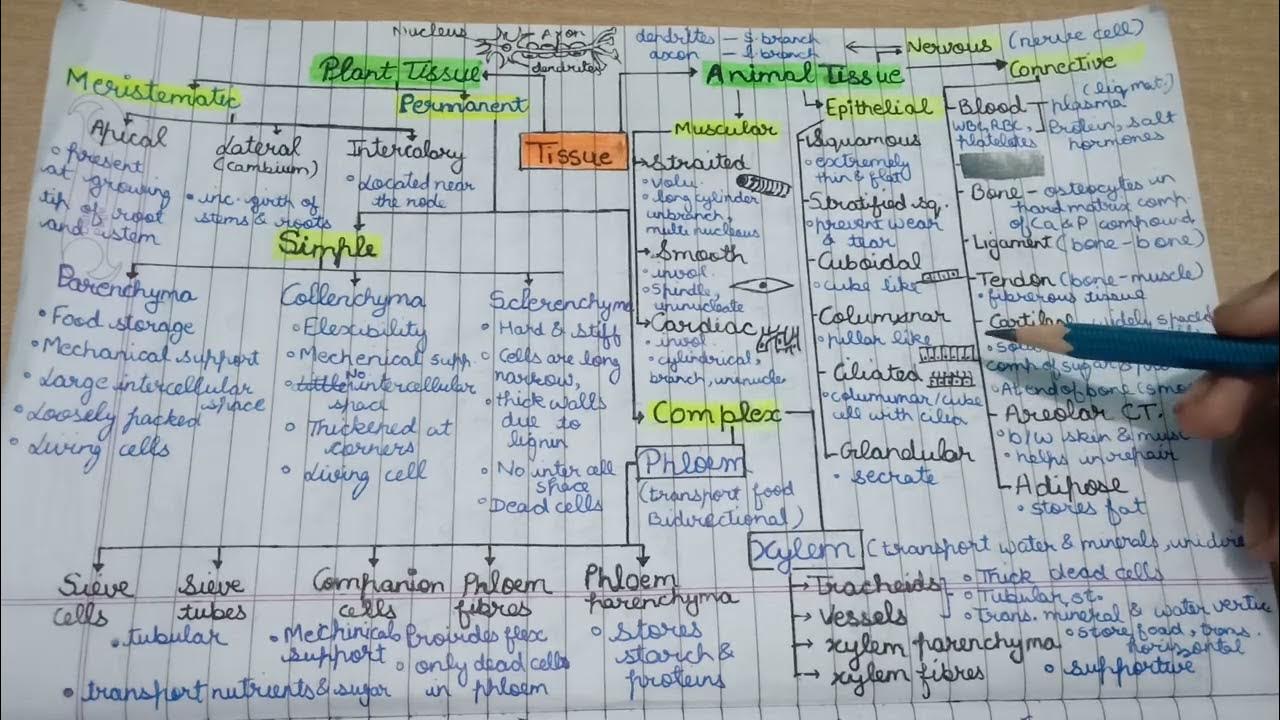 Nucleus
Axon
dendrites
dendrites — s. branch
axon — l. branch
Nervous (nerve cell)
Plant Tissue
Animal Tissue
Connective
Meristematic
Permanent
Epithelial
Muscular
Tissue
Apical
• present
at growing
tip of root
and stem
Lateral
(cambium)
• inc. girth of
stems & roots
Intercalary
• Located near
the node
Simple
Parenchyma
• Food storage
• Mechanical support
• Large intercellular
space
• Loosely packed
• Living cells
Collenchyma
• Flexibility
• Mechenical supp.
• No intercellular
spac
• Thickened at
corners
• Living cell
Sclerenchym
• Hard & stiff
• Cells are long
narrow,
• thick walls
due to
lignin
• No inter cell
space
• Dead cells
Straited
• volu.
• long cylinder
unbranch,
multi nucleous
Smooth
• invol.
• Spindle,
uninucleate
Cardiac
• invol.
• cylindrical,
branch, uninucle
Squamous
• extremely
thin & flat
Stratified sq.
• prevent wear
& tear
Cuboidal
• cube like
Columnar
• pillar like
Ciliated
• columnar/cube
cell with cilia
Glandular
• secrate
Blood
WBC, RBC,
platelates
(liq mat.)
plasma
Protein, salt
hormones
Bone — osteocytes in
hard matrix comp.
of Ca & P compound
Ligament (bone-bone)
Tendon (bone-muscle)
• fiberous tissue
widely spaced
comp. of sugar &
• At end of bone
Areolar CT.
• b/w skin & musc
• helps in repair
Adipose
• stores fat
Complex
Phloem
(transport food
Bidirectional)
Xylem (transport water & minerals, unidire
Sieve
cells
Sieve
tubes
• tubular
• transport nutrients & sugar
Companion
cells
• Mechinical
support
Phloem
fibres
Proirdes flex
• only dead cells
in phloem
Phloem
parenchyma
• stores
starch &
proteins
Tracheids
Vessels
• Thick dead cells
• Tubular st.
• Trans. mineral & water vertic
xylem parenchyma • store food, trans.
horizontal
xylem fibres • supportive